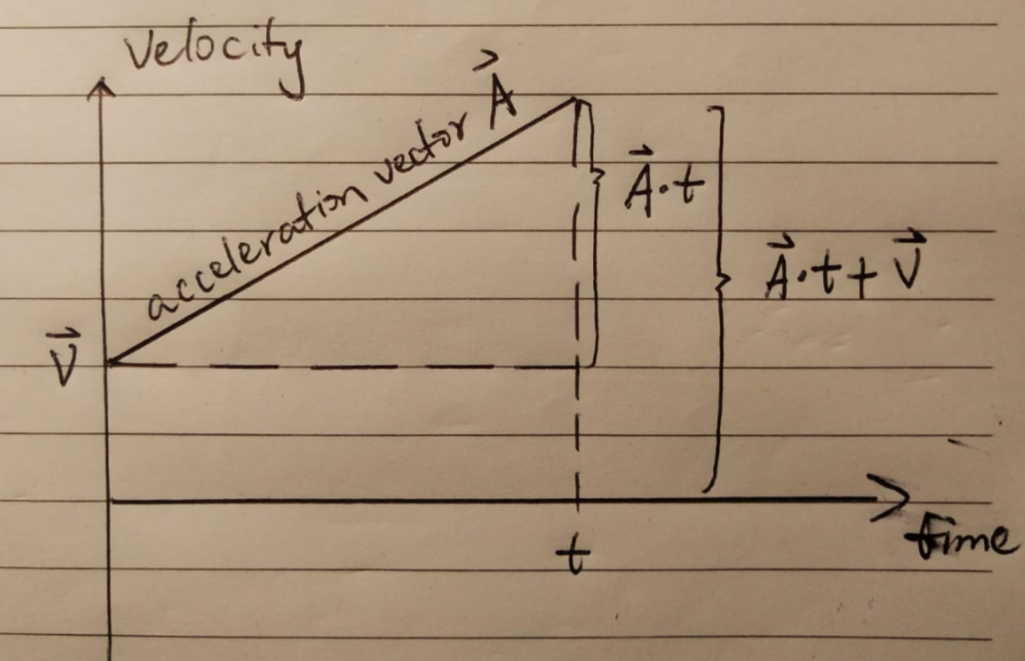 Velocity
acceleration vector A⃗
A⃗·t
A⃗·t + V⃗
V⃗
t
time